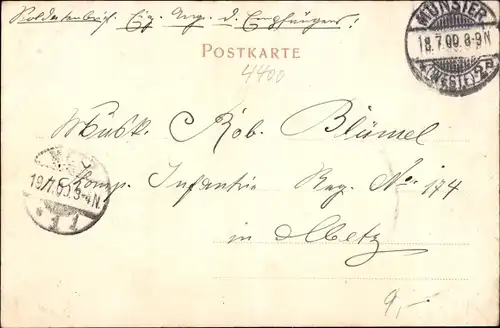 Soldatenbrief. Eig. Ang. d. Empfängers!
POSTKARTE
4400
MÜNSTER
18.7.00.8-9N
*(WESTF)2a
Musk. Rob. Blümel
19/7.00.3-4N.
Komp. Infantrie Reg. No. 174
in Metz
9,-